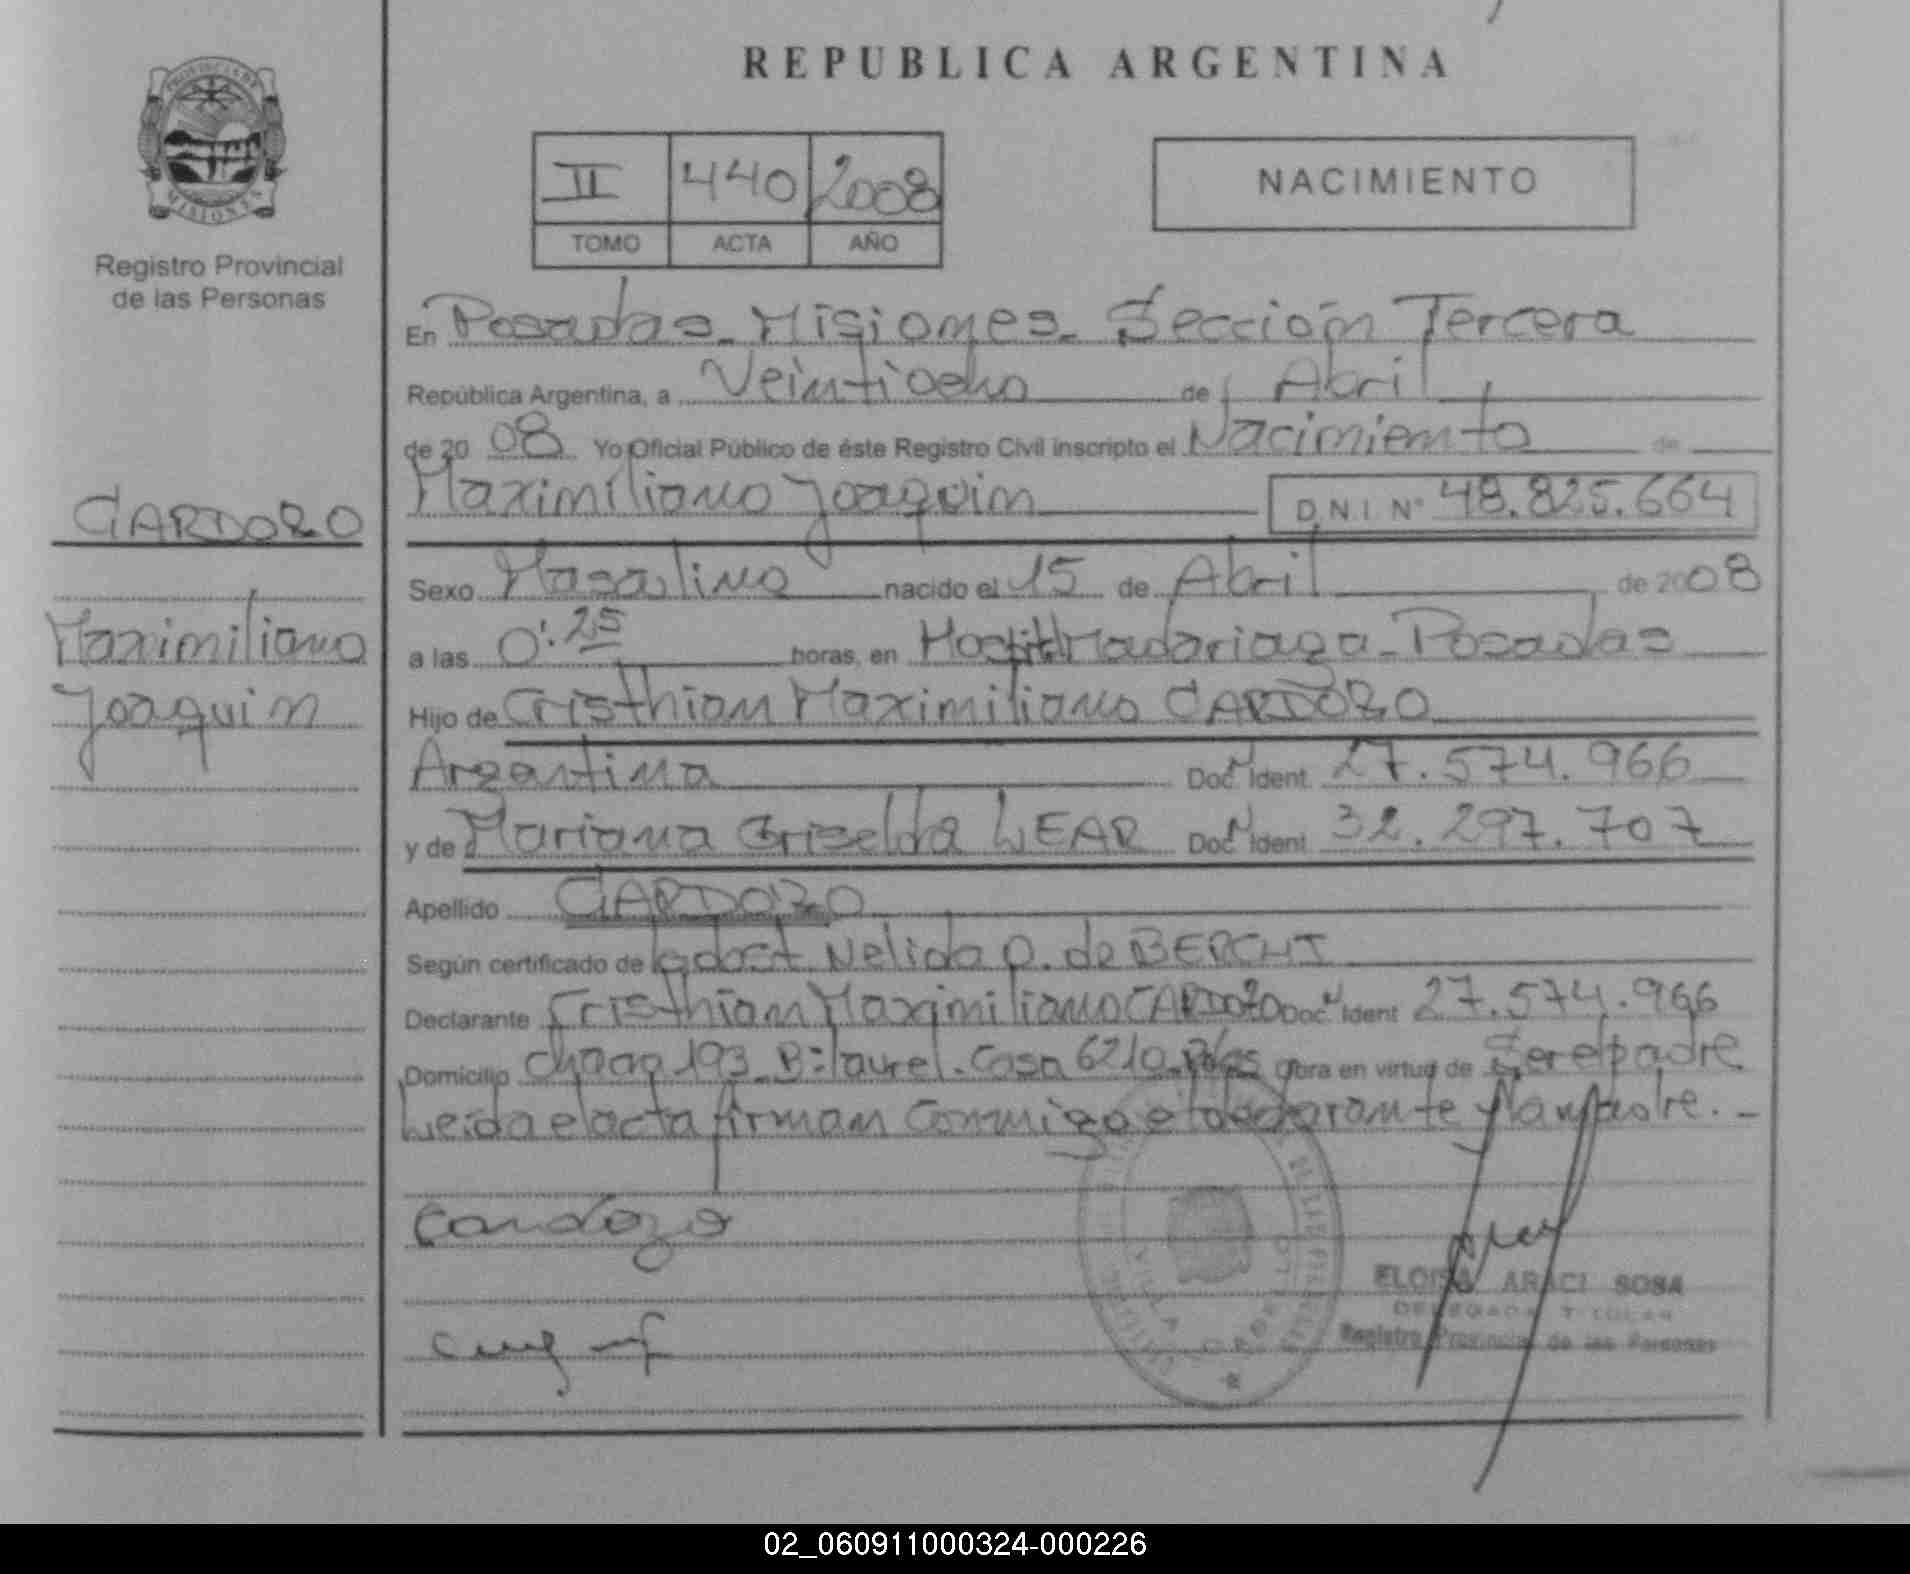 REPUBLICA ARGENTINA
PROVINCIA DE
MISIONES
Registro Provincial
de las Personas
II 440 2008
TOMO ACTA AÑO
NACIMIENTO
En Posadas - Misiones - Sección Tercera
República Argentina, a Veintiocho de Abril
de 2008 Yo Oficial Público de éste Registro Civil inscripto el Nacimiento de
Maximiliano Joaquin D.N.I. Nº 48.825.664
CARDOZO
Maximiliano
Joaquin
Sexo Masculino nacido el 15 de Abril de 2008
a las 0:25 horas, en Hospital Madariaga - Posadas
Hijo de Cristhian Maximiliano CARDOZO
Argentina Doc. Ident. 27.574.966
y de Mariana Griselda WEAR Doc. Ident. 32.297.707
Apellido CARDOZO
Según certificado de Nelida O. de BERCHT
Declarante Cristhian Maximiliano CARDOZO Doc. Ident. 27.574.966
Domicilio chaca 193 - Bº laurel. Casa 6210 - Pdas obra en virtud de Ser el padre
Leida el acta firman Conmigo el declarante y la madre. -
Cardozo
VILLA CABELLO
ELOISA ARACI SOSA
DELEGADA TITULAR
Registro Provincial de las Personas
02_060911000324-000226